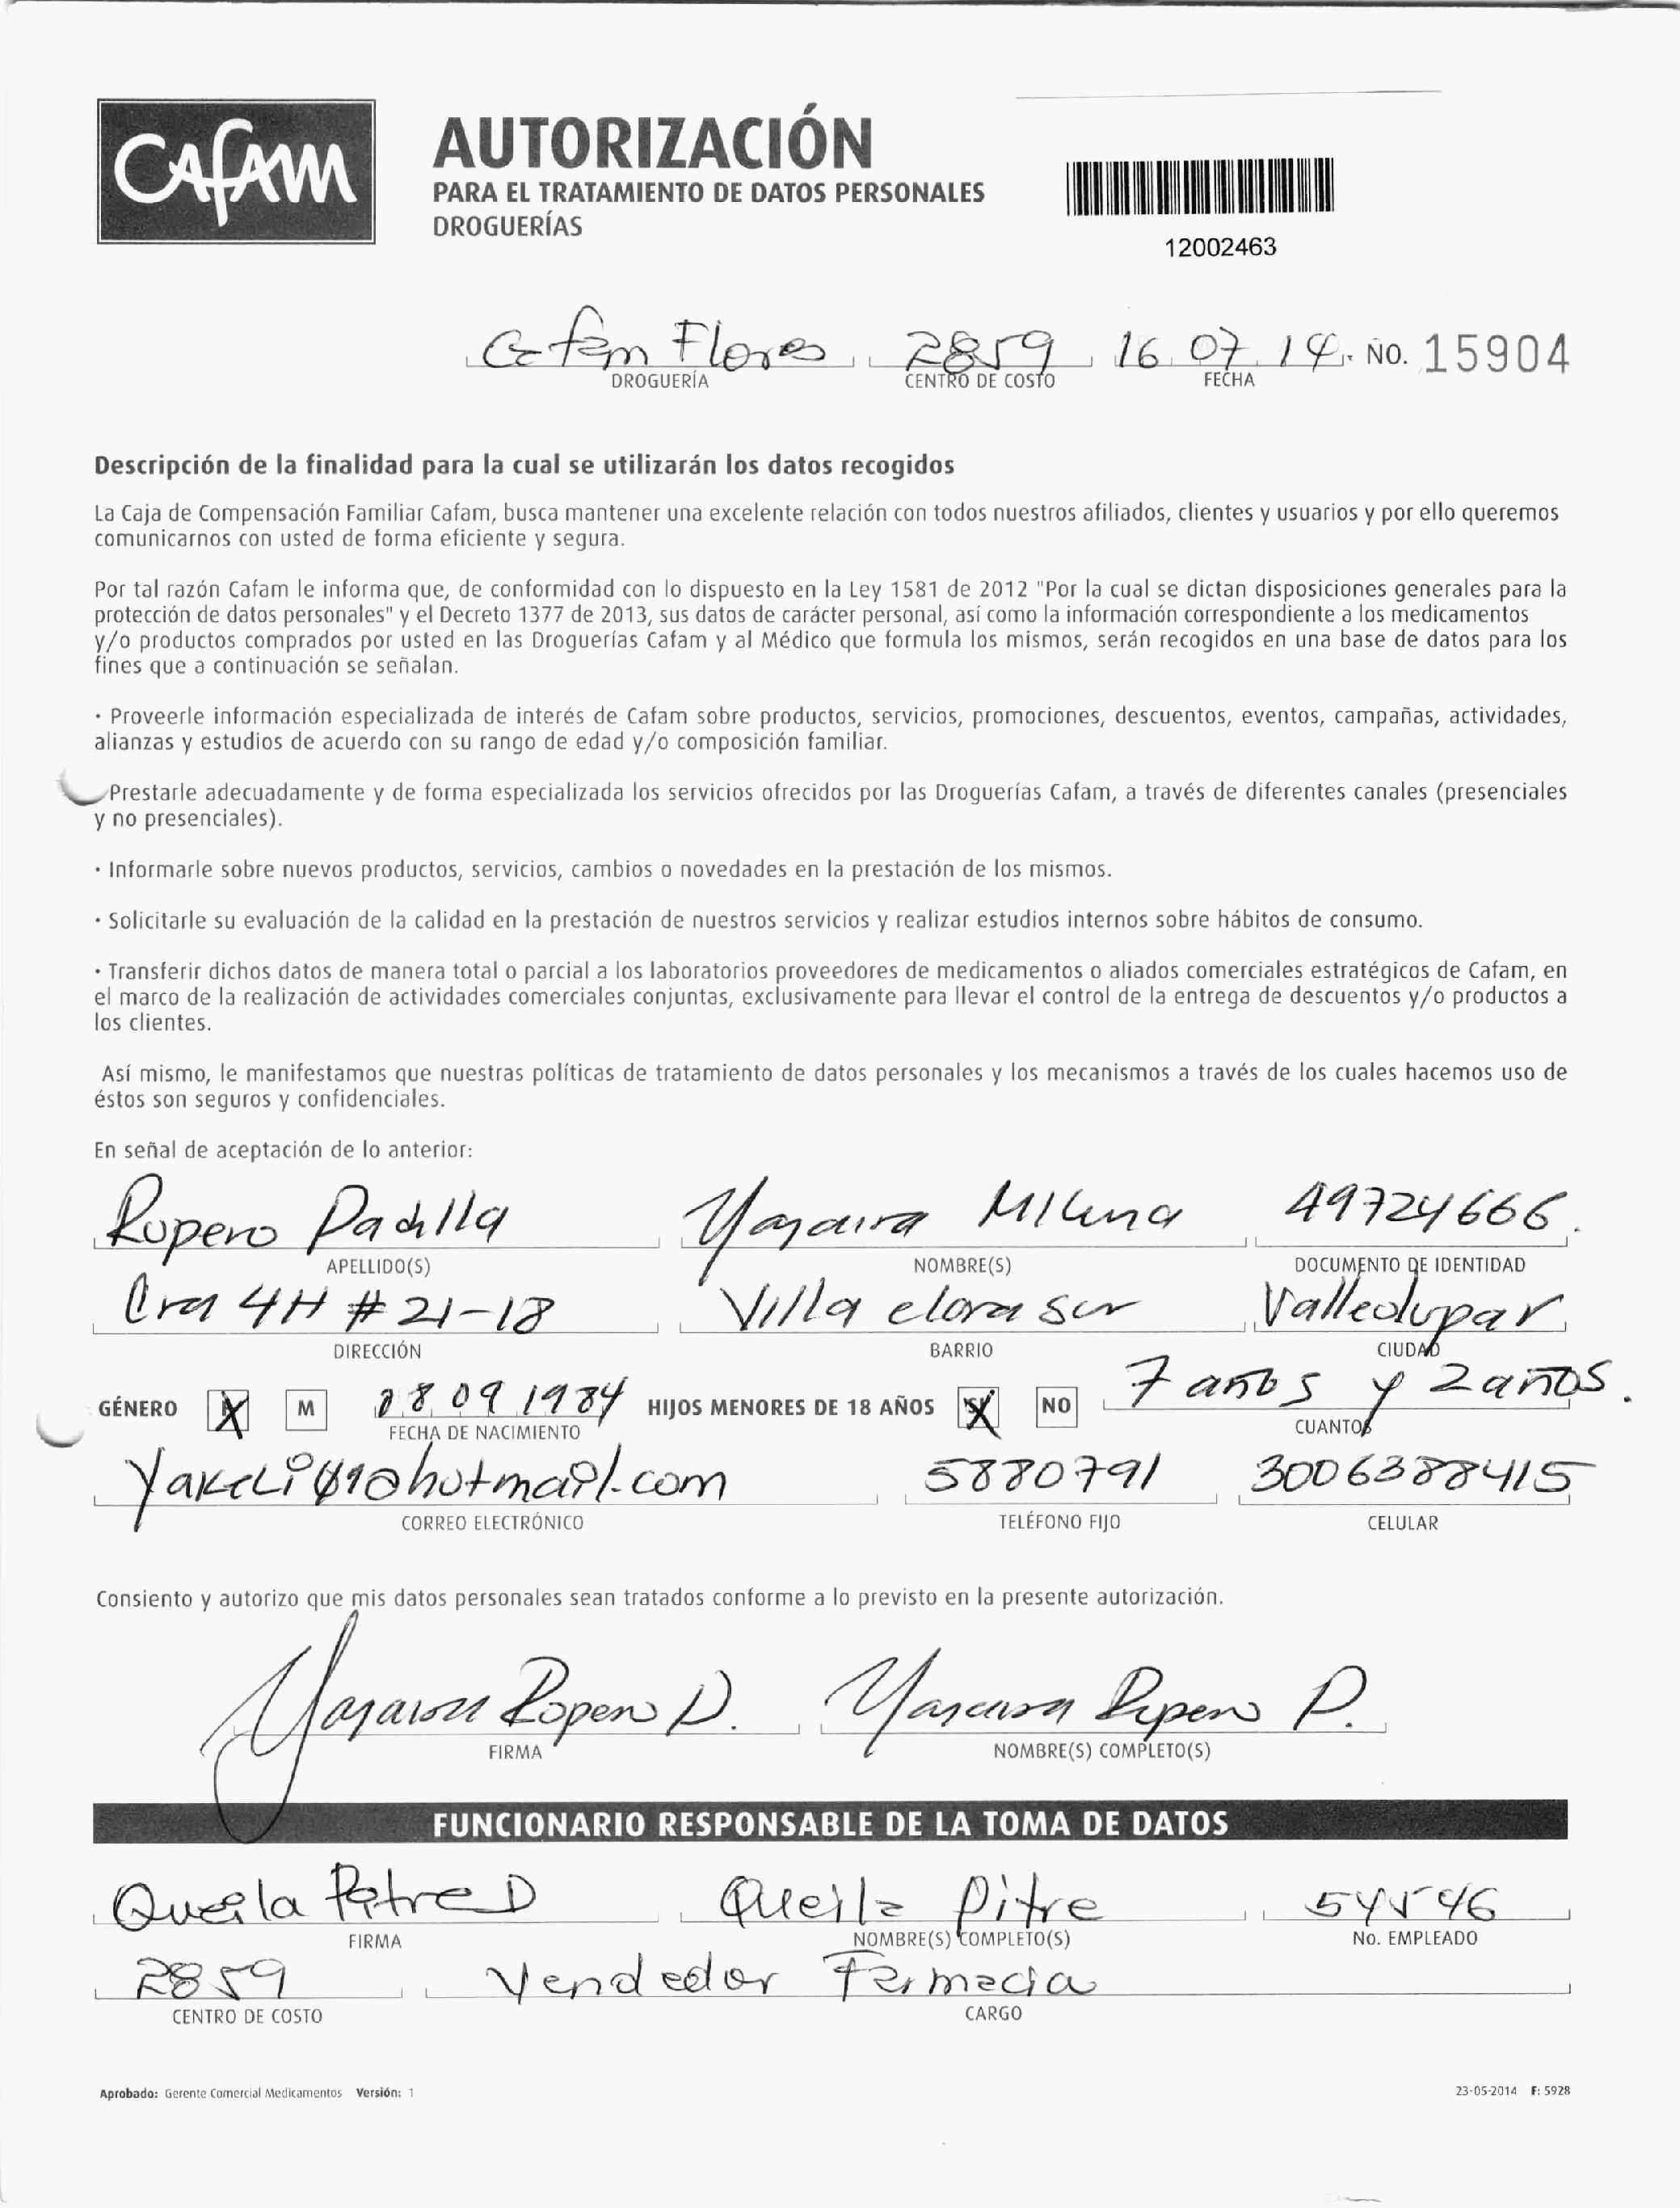 CAfAM
AUTORIZACIÓN
PARA EL TRATAMIENTO DE DATOS PERSONALES
DROGUERÍAS
12002463
Cafam Flores 2859 16 07 14 No. 15904
DROGUERÍA CENTRO DE COSTO FECHA
Descripción de la finalidad para la cual se utilizarán los datos recogidos
La Caja de Compensación Familiar Cafam, busca mantener una excelente relación con todos nuestros afiliados, clientes y usuarios y por ello queremos
comunicarnos con usted de forma eficiente y segura.
Por tal razón Cafam le informa que, de conformidad con lo dispuesto en la Ley 1581 de 2012 "Por la cual se dictan disposiciones generales para la
protección de datos personales" y el Decreto 1377 de 2013, sus datos de carácter personal, así como la información correspondiente a los medicamentos
y/o productos comprados por usted en las Droguerías Cafam y al Médico que formula los mismos, serán recogidos en una base de datos para los
fines que a continuación se señalan.
· Proveerle información especializada de interés de Cafam sobre productos, servicios, promociones, descuentos, eventos, campañas, actividades,
alianzas y estudios de acuerdo con su rango de edad y/o composición familiar.
Prestarle adecuadamente y de forma especializada los servicios ofrecidos por las Droguerías Cafam, a través de diferentes canales (presenciales
y no presenciales).
· Informarle sobre nuevos productos, servicios, cambios o novedades en la prestación de los mismos.
· Solicitarle su evaluación de la calidad en la prestación de nuestros servicios y realizar estudios internos sobre hábitos de consumo.
· Transferir dichos datos de manera total o parcial a los laboratorios proveedores de medicamentos o aliados comerciales estratégicos de Cafam, en
el marco de la realización de actividades comerciales conjuntas, exclusivamente para llevar el control de la entrega de descuentos y/o productos a
los clientes.
Así mismo, le manifestamos que nuestras políticas de tratamiento de datos personales y los mecanismos a través de los cuales hacemos uso de
éstos son seguros y confidenciales.
En señal de aceptación de lo anterior:
Ropero Padilla Yajaira Milena 49724666.
APELLIDO(S) NOMBRE(S) DOCUMENTO DE IDENTIDAD
Cra 4H # 21-18 Villa clara sur Valledupar
DIRECCIÓN BARRIO CIUDAD
GÉNERO X M 09 1984 HIJOS MENORES DE 18 AÑOS SI X NO 7 años y 2 años.
FECHA DE NACIMIENTO CUANTOS
5880791 3006388415
CORREO ELECTRÓNICO TELÉFONO FIJO CELULAR
Consiento y autorizo que mis datos personales sean tratados conforme a lo previsto en la presente autorización.
Yajaira Ropero P. Yajaira Ropero P.
FIRMA NOMBRE(S) COMPLETO(S)
FUNCIONARIO RESPONSABLE DE LA TOMA DE DATOS
Queila Pitre D Queila Pitre 54546
FIRMA NOMBRE(S) COMPLETO(S) No. EMPLEADO
2859 Vendedor Farmacia
CENTRO DE COSTO CARGO
Aprobado: Gerente Comercial Medicamentos Versión: 1 23-05-2014 F: 5928